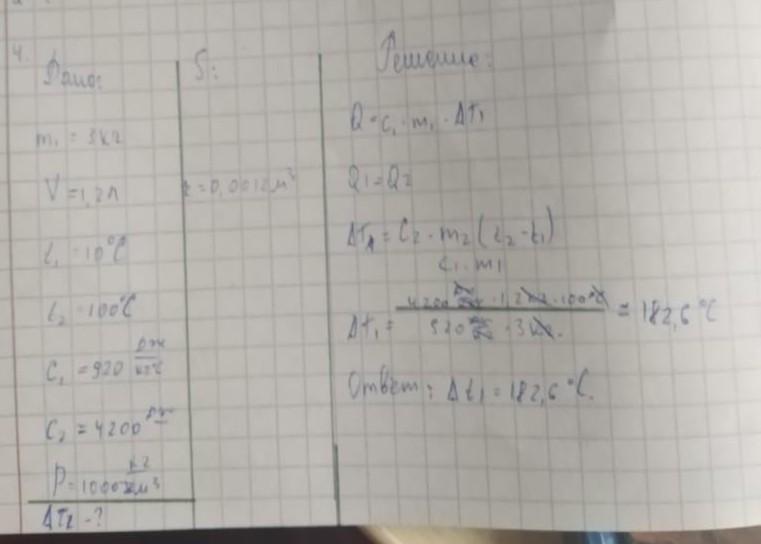 4.
Дано:
m₁ = 3кг
V = 1,2л
t₁ = 10°C
t₂ = 100°C
C₁ = 920 Дж/кг°C
C₂ = 4200 Дж
ρ = 1000 кг/м³
ΔT₁ - ?
= 0,0012м³
Решение:
Q = c₁ · m₁ · ΔT₁
Q₁ = Q₂
ΔT₁ = C₂ · m₂ (t₂ - t₁) / c₁ · m₁
Δt₁ = 4200 · 1,2кг · 100°C / 920 · 3кг = 182,6°C
Ответ: Δt₁ = 182,6°C.